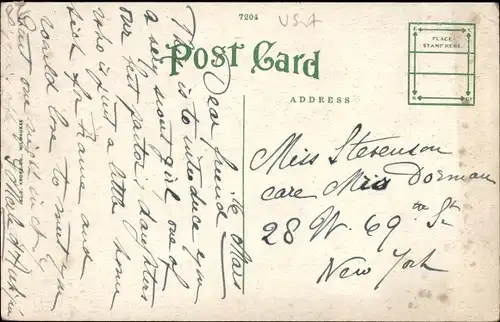 7204
USA
POST CARD
PLACE
STAMP HERE
ADDRESS
Dear friend
This is to introduce you
a very sweet girl one of
our best pastor's daughters
who is just a little home
sick for Home and
would love to meet you
Miss Stevenson
care Miss Dorman
28 W. 69 St
New York